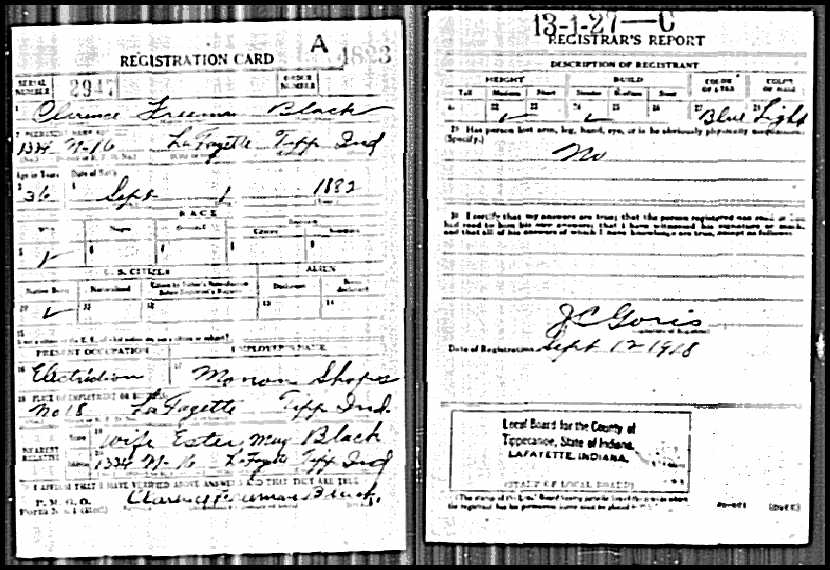 REGISTRATION CARD
A
1823
SERIAL NUMBER 2947
ORDER NUMBER
1 Clarence Freeman Black
1334 N-16 LaFayette Tipp Ind
Age in Years
Date of Birth
36 Sept 1 1882
RACE
White
Negro
Oriental
Indian
Citizen
5
6
7
8
9
U. S. CITIZEN
ALIEN
Native Born
Naturalized
Citizen by Father's Naturalization Before Registrant's Majority
Declarant
10
11
12
13
14
15
PRESENT OCCUPATION
EMPLOYER'S NAME
16 Electrician
17 Monon Shops
18 PLACE OF EMPLOYMENT OR BUSINESS
No 18 LaFayette Tipp Ind.
NEAREST RELATIVE
Name
19 Wife Ester May Black
Address
20 1334 N-16 LaFayette Tipp Ind
I AFFIRM THAT I HAVE VERIFIED ABOVE ANSWERS AND THAT THEY ARE TRUE
P. M. G. O.
Clarence Freeman Black
13-1-27-C
REGISTRAR'S REPORT
DESCRIPTION OF REGISTRANT
HEIGHT
BUILD
COLOR OF EYES
COLOR OF HAIR
Tall
Medium
Short
Slender
Medium
Stout
22
23
24
25
26
27 Blue
28 Light
29 Has person lost arm, leg, hand, eye, or is he obviously physically
(Specify.)
No
30 I certify that my answers are true; that the person registered has read or has
had read to him his own answers; that I have witnessed his signature or mark,
and that all of his answers of which I have knowledge are true, except as follows:
J C Goris
Date of Registration Sept 12 1918
Local Board for the County of
Tippecanoe, State of Indiana,
LAFAYETTE, INDIANA.
(STAMP OF LOCAL BOARD)
(OVER)